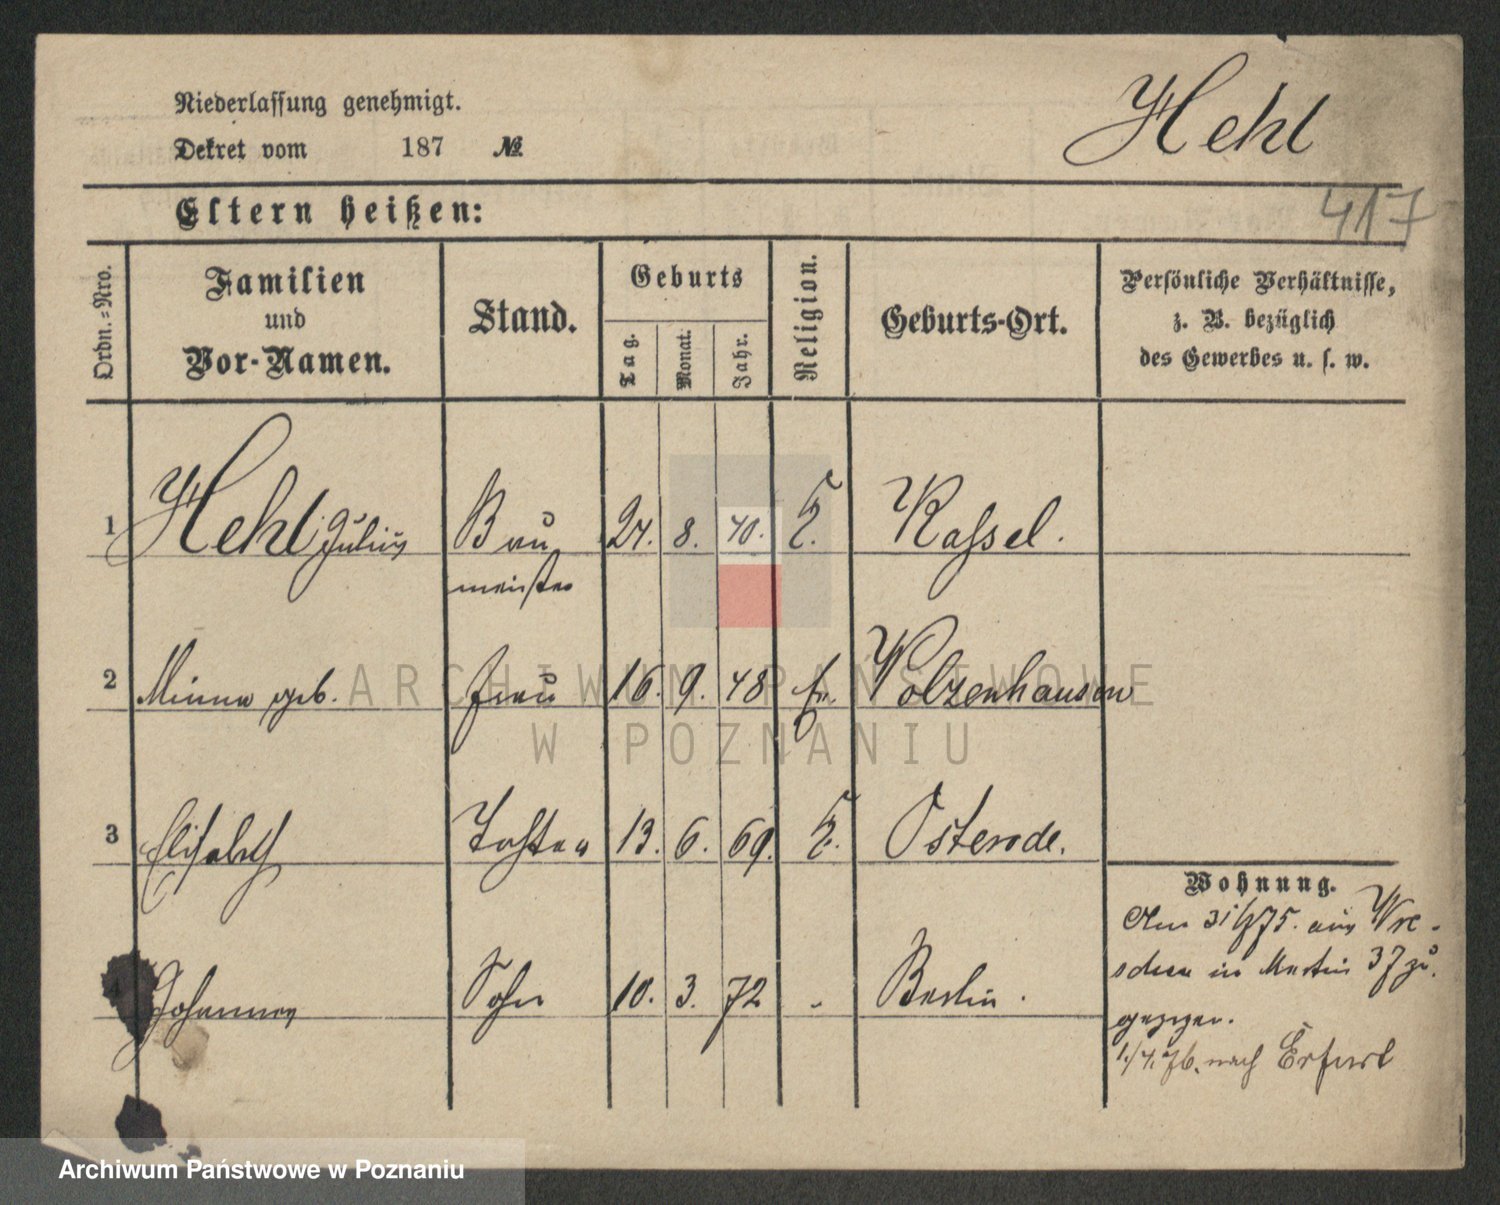 Niederlassung genehmigt.
Dekret vom 187 №
Hehl
417
Eltern heißen:
Ordn.-Nro.
Familien
und
Vor-Namen.
Stand.
Geburts
Tag.
Monat.
Jahr.
Religion.
Geburts-Ort.
Persönliche Verhältnisse,
z. B. bezüglich
des Gewerbes u. s. w.
1 Hehl Julius Bau 24. 8. 40. E. Kassel.
meister
2 Minna geb. Frau 16. 9. 48 Wolzenhausen
3 Elisabeth Tochter 13. 6. 69. E. Osterode.
4 Johannes Sohn 10. 3. 72 - Berlin.
Wohnung.
Am 31/ 75. aus Wre-
schen in Martin 37 zu.
gezogen.
1/4.76. nach Erfurt
ARCHIWUM PAŃSTWOWE
W POZNANIU
Archiwum Państwowe w Poznaniu